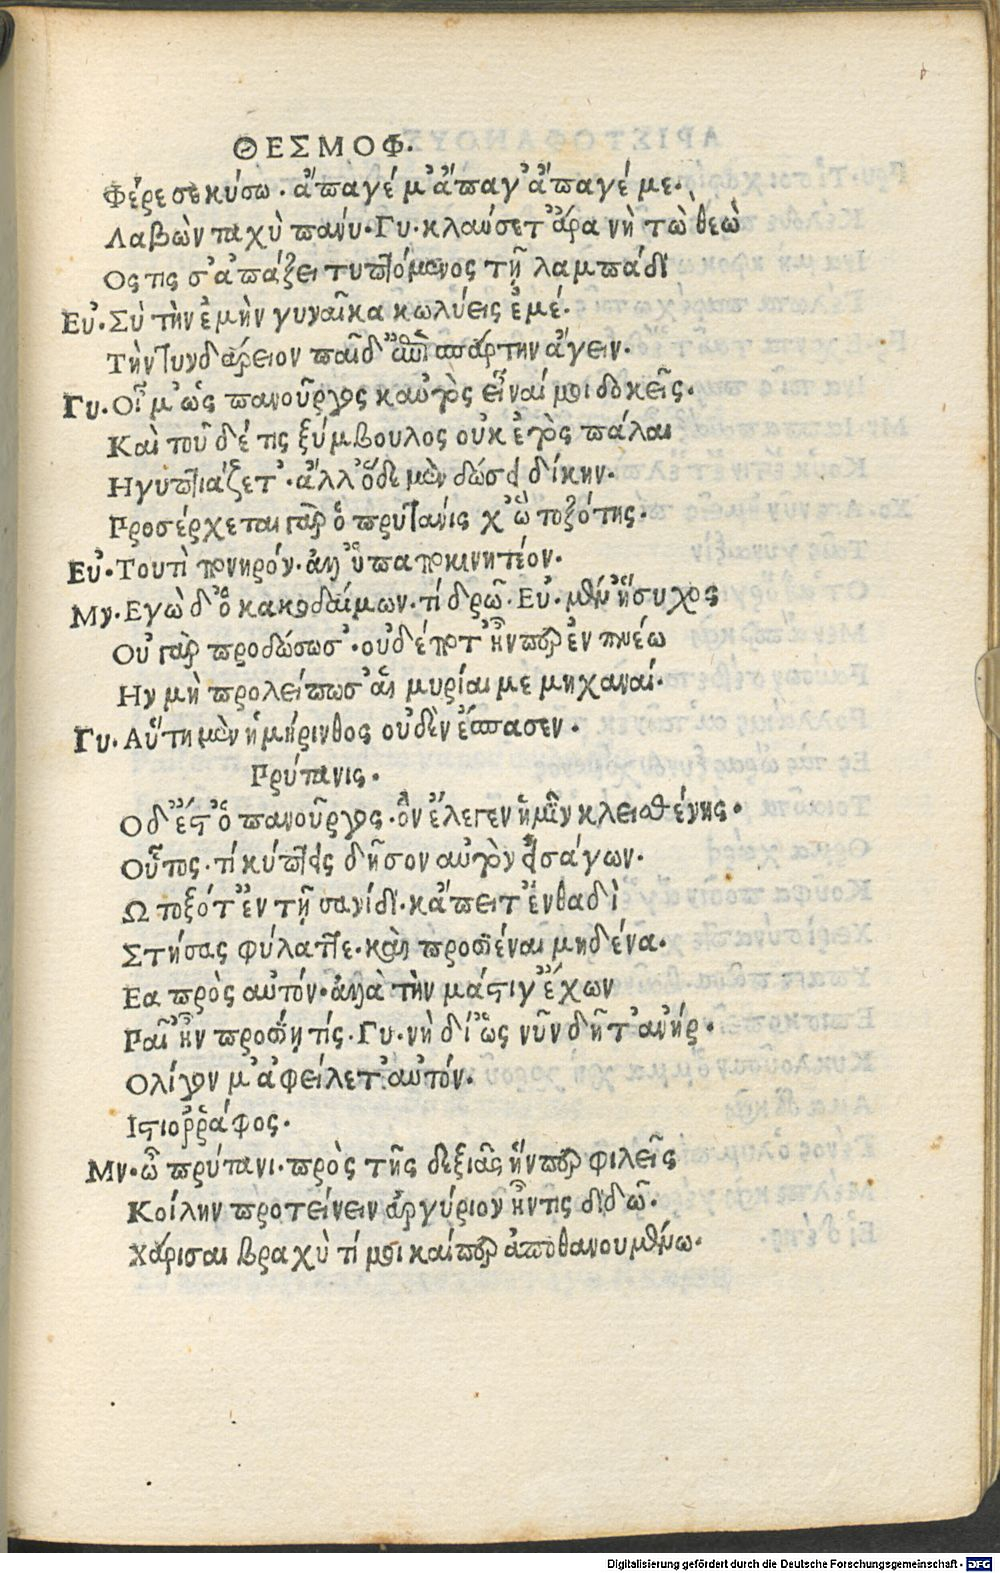 ΘΕΣΜΟΦ.
Φέρε σε κύσω . ἄπαγέ μ' ἄπαγ' ἄπαγέ με.
Λαβὼν ταχὺ πάνυ. Γυ. κλαύσετ' ἄρα νὴ τὼ θεὼ
Ος τις σ' ἀπάξει τυπτόμενος τῇ λαμπάδι
Εὐ. Σὺ τὴν ἐμὴν γυναῖκα κωλύεις ἐμέ.
Τὴν τυνδάρειον παῖδ' ἐπὶ σπάρτην ἄγειν.
Γυ. Οἴμ' ὡς πανοῦργος καὐτὸς εἶναί μοι δοκεῖς.
Καὶ τοῦδέ τις ξύμβουλος οὐκ ἐτὸς πάλαι
Ηγυπτιάζετ'. ἀλλ' ὅδε μὲν δώσει δίκην.
Προσέρχεται γὰρ ὁ πρύτανις χ' ὠ τοξότης.
Εὐ. Τουτὶ πονηρόν. ἀλλ' ὑπαποκινητέον.
Μν. Εγὼ δ' ὁ κακοδαίμων. τί δρῶ. Εὐ. μέν' ἥσυχος
Οὐ γὰρ προδώσω σ'. οὐδέποτ' ἤνπερ ἐνπνέω
Ην μὴ προλείπωσ' αἱ μυρίαι με μηχαναί.
Γυ. Αὕτη μὲν ἡ μήρινθος οὐδὲν ἔσπασεν.
Πρύτανις.
Οδ' ἔσθ' ὁ πανοῦργος. ὃν ἔλεγεν ἡμῖν κλεισθένης.
Οὗτος. τί κύπτεις δῆσον αὐτὸν εἰσάγων.
Ω τοξότ' ἐν τῇ σανίδι. κἄπειτ' ἐνθαδὶ
Στήσας φύλαττε. καὶ προσιέναι μηδένα.
Εα πρὸς αὐτόν. ἀλλὰ τὴν μάστιγ' ἔχων
Παῖ' ἢν προσίῃ τίς. Γυ. νὴ δί' ὡς νῦν δῆτ' ἀνήρ.
Ολίγον μ' ἀφείλετ' αὐτόν.
Ιστιοῤῥάφος.
Μν. ὦ πρύτανι. πρὸς τῆς δεξιᾶς ἥνπερ φιλεῖς
Κοίλην προτείνειν ἀργύριον ἤν τις διδῶ.
Χάρισαι βραχὺ τί μοι καίπερ ἀποθανουμένω.
Digitalisierung gefördert durch die Deutsche Forschungsgemeinschaft - DFG